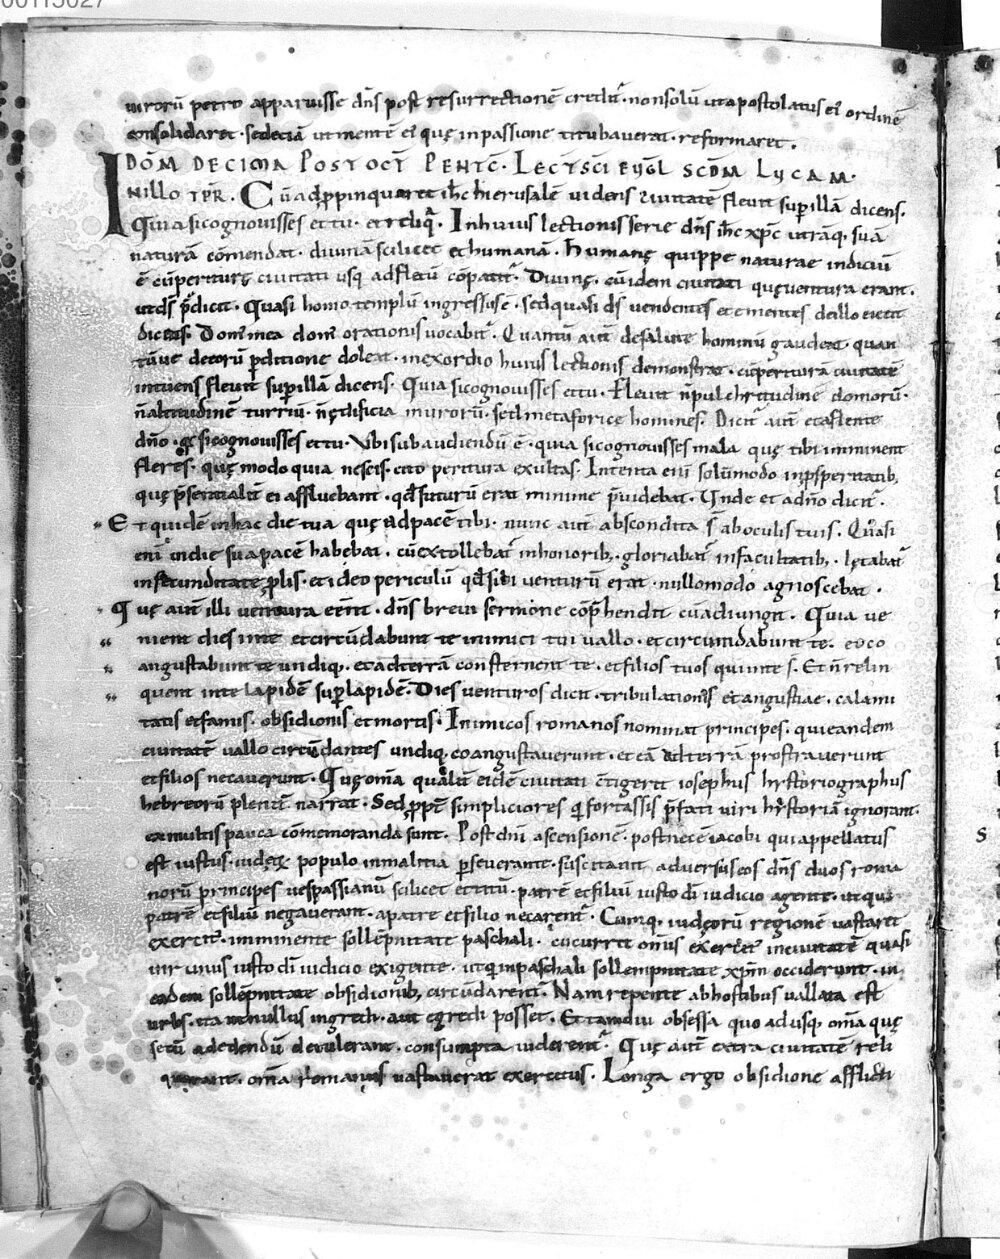 00115027
uirorū petro apparuisse dn̄s post resurrectionē credit᷒· non solū ut apostolatus ei ordinē
consolidaret· sed etiā ut mentē ei quę in passione titubauerat· reformaret.
DOM̄ DECIMA POST OCT̄ PENTC̄· LECT̄ SCI EVGL̄ SCDM̄ LVCAM·
INILLO TPR̄. Cū adp̱pinquaret ih̄c hierusalē uidens ciuitatē fleuit sup illā dicens.
Quia si cognouisses et tu· et reliq̄. In huius lectionis serie dn̄s ih̄c xp̄c utrāq; suā
naturā cōmendat· diuinā scilicet et humanā. Humanę quippe naturae indiciū
ē cū periturę ciuitati usq; ad fletū cōpatit᷒. Diuinę· cū eidem ciuitati quę uentura erant·
ut ds̄ p̄dicit· Quasi homo templū ingressus ē· sed quasi ds̄ uendentes et ementes de illo eiecit
dicens. Dom̄ mea dom̄ orationis uocabit᷒. Quantū aut̄ de salute hominū gaudeat· quan
tūue de eorū p̱ditione doleat· in exordio huius lectionis demonstrat· cū peritura ciuitatē
intuens fleuit sup illā dicens· Quia si cognouisses et tu· Fleuit n̄ pulchritudinē domorū·
n̄ altitudinē turriū· n̄ ędificia murorū· sed metaforice homines. Dicit᷒ aut̄ et a flente
dn̄o· q̄ si cognouisses et tu· Vbi subaudiendū ē· quia si cognouisses mala quę tibi imminent
fleres· quę modo quia nescis· cito peritura exultas. Intenta eni solūmodo in p̱speritatib;
quę p̄sentialit̄ ei affluebant· qd̄ futurū erat minime p̄uidebat· Vnde et a dn̄o dicit᷒·
Et quidē in hac die tua quę ad pacē tibi· nunc aut̄ abscondita s̄ ab oculis tuis. Quasi
eni in die sua pacē habebat· cū extollebat᷒ in honorib;· gloriabat᷒ in facultatib;· lętabat᷒
in fęcunditate p̱lis· et ideo periculū qd̄ sibi venturū erat· nullomodo agnoscebat·
Quę aut̄ illi uentura eēnt· dn̄s breui sermone cōp̄hendit cū adiungit· Quia ue
nient dies in te et circūdabunt te inimici tui uallo· et circumdabunt te· et co
angustabunt te undiq;· et ad terrā consternent te· et filios tuos qui in te s̄· Et n̄ relin
quent in te lapidē sup lapidē· Dies venturos dicit· tribulationis et angustiae· calami
tatis et famis· obsidionis et mortis· Inimicos romanos nominat principes· qui eandem
ciuitatē uallo circūdantes undiq; coangustauerunt· et eā ad terrā prostrauerunt
et filios necauerunt· Quę om̄a qualit̄ eidē ciuitati c̄tigerit iosephus hystoriographus
hebreorū plenit̄ narrat· Sed p̱pt̄ simpliciores qi fortassis p̄fati uiri hystoriā ignorant·
ex multis pauca cōmemoranda sunt· Post dn̄i ascensionē· post necē iacobi qui appellatus
est iustus· iudęę populo in malitia p̱seuerante· suscitauit aduersus eos dn̄s duos roma
norū principes uespassianū scilicet et titū· patrē et filiū iusto dī iudicio agente· ut qui
patrē et filiū negauerant· a patre et filio necarent᷒· Cumq; iudęorū regionē uastaret
exercit᷒· imminente sollēpnitate paschali· cucurrit om̄is exercit᷒ in ciuitatē quasi
uir unus iusto dī iudicio exigente· ut qi in paschali sollempnitate xp̄m occiderunt· in
eadem sollēpnitate obsidionib; circūdarent᷒. Nam repente ab hostibus uallata est
urbs· ita ut nullus ingredi· aut egredi posset. Et tamdiu obsessa quo adusq; om̄a quę
secū ad edendū detulerant· consumpta uiderent᷒. Quę aut̄ extra ciuitatē reli
querant· om̄a romanus uastauerat exercitus. Longa ergo obsidione afflicti
S